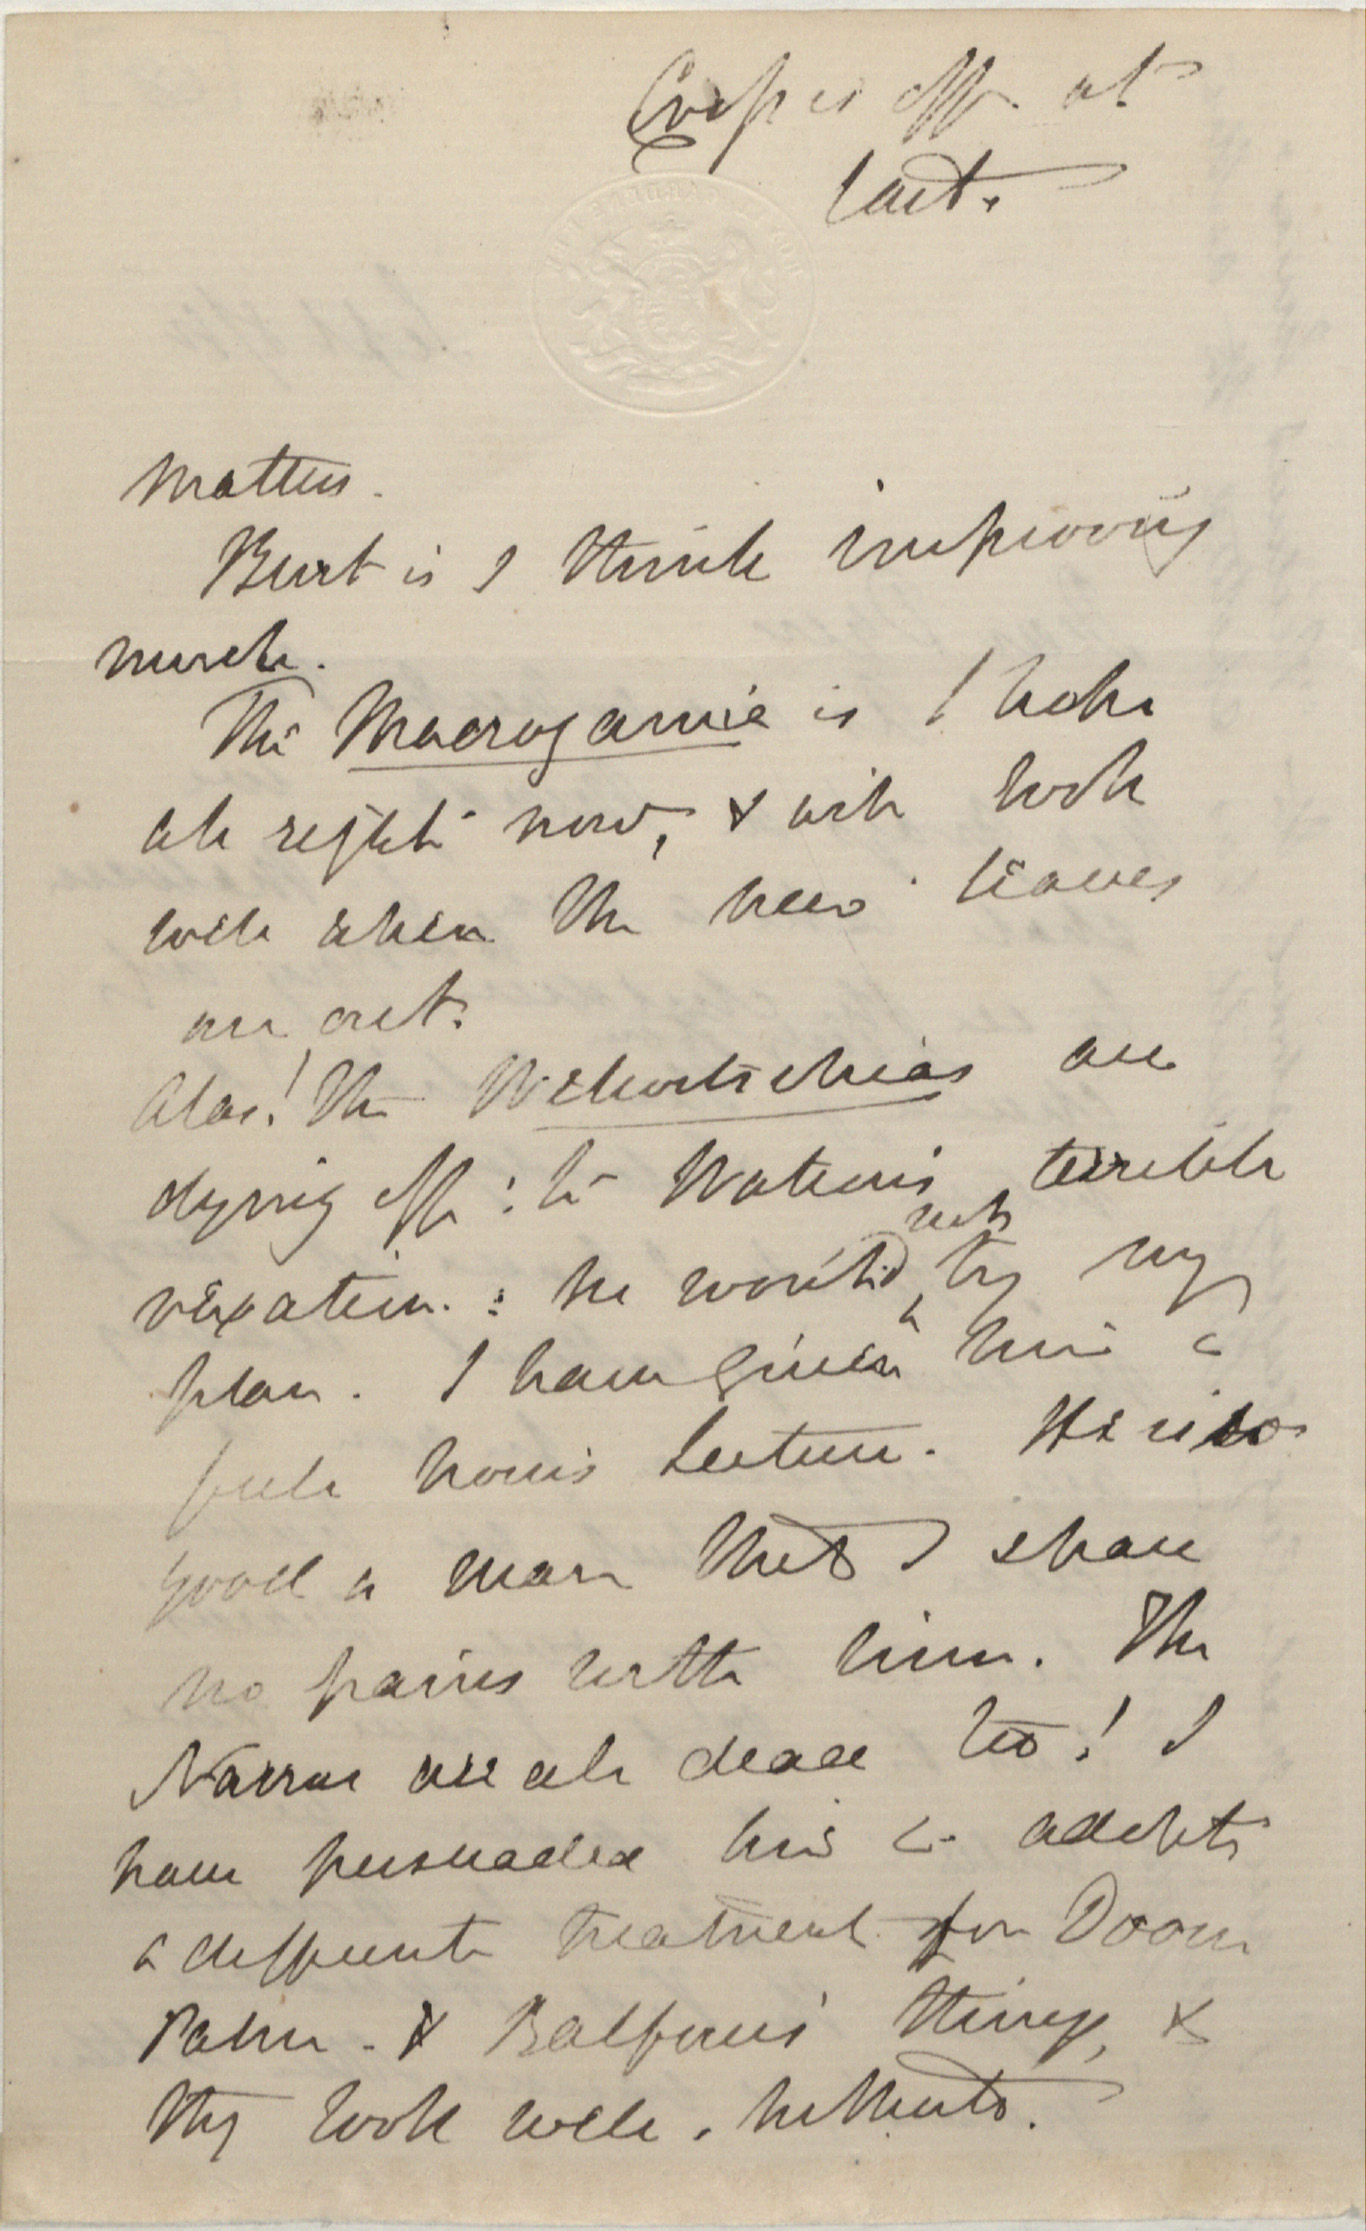 Crisp is off at
last.
matters.
Burt is I think improving
much.
The Macrozamia is I hope
all right now, & will look
well when the new leaves
are out.
Alas! the Welwitschias are
dying off: to Watson's terrible
vexation: he would not try my
plan. I have given him a
full hours lecture. He is so
good a man that I spare
no pains with him. The
Narras are all dead too! I
have persuaded him to adopt
a different treatment for Doom
Palm. & Balfour's things, &
they look well, hitherto.